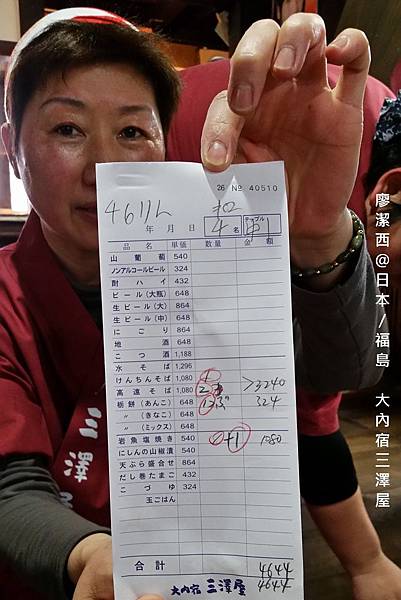 26 No 40510
46りん
年 月 日 4 名 テーブル 中
品名 単価 数量 金額
山葡萄 540
ノンアルコールビール 324
酎ハイ 432
ビール(大瓶) 648
生ビール(大) 864
生ビール(中) 648
にごり 864
地酒 648
こつ酒 1,188
水そば 1,296
けんちんそば 1,080
高遠そば 1,080 >3240
栃餅(あんこ) 648 324
〃(きなこ) 648
〃(ミックス) 648
岩魚塩焼き 540 +1 1080
にしんの山椒漬 540
天ぷら盛合せ 864
だし巻たまご 432
こづゆ 324
玉ごはん
合計 4644
4644
大内宿 三澤屋
三澤
廖潔西@日本/福島 大內宿三澤屋